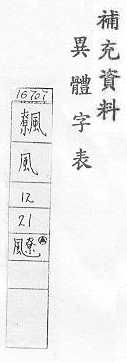 補充資料
異體字表
16701
飉
風
12
21